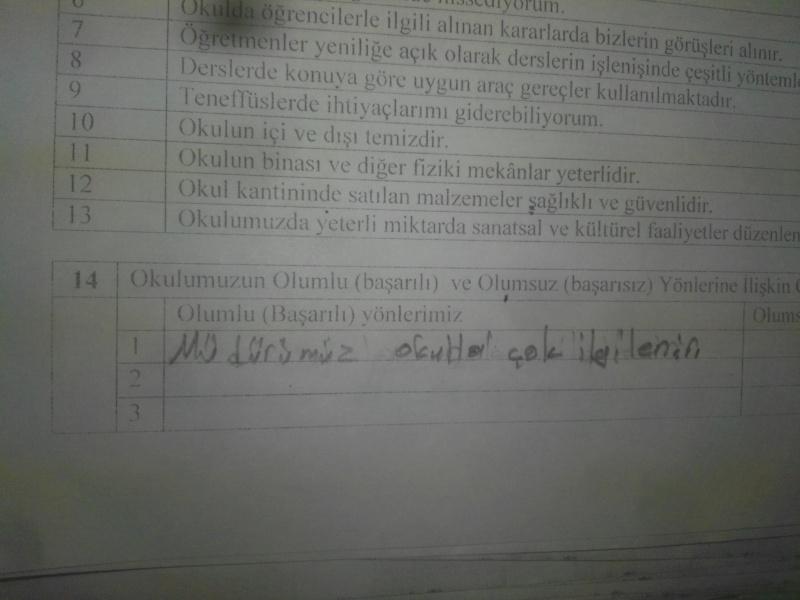 6 hissediyorum.
7 Okulda öğrencilerle ilgili alınan kararlarda bizlerin görüşleri alınır.
8 Öğretmenler yeniliğe açık olarak derslerin işlenişinde çeşitli yöntemle
9 Derslerde konuya göre uygun araç gereçler kullanılmaktadır.
10 Teneffüslerde ihtiyaçlarımı giderebiliyorum.
11 Okulun içi ve dışı temizdir.
12 Okulun binası ve diğer fiziki mekânlar yeterlidir.
13 Okul kantininde satılan malzemeler sağlıklı ve güvenlidir.
Okulumuzda yeterli miktarda sanatsal ve kültürel faaliyetler düzenlen
14 Okulumuzun Olumlu (başarılı) ve Olumsuz (başarısız) Yönlerine İlişkin
Olumlu (Başarılı) yönlerimiz Olums
1 Müdürümüz okulla çok ilgilenin
2
3